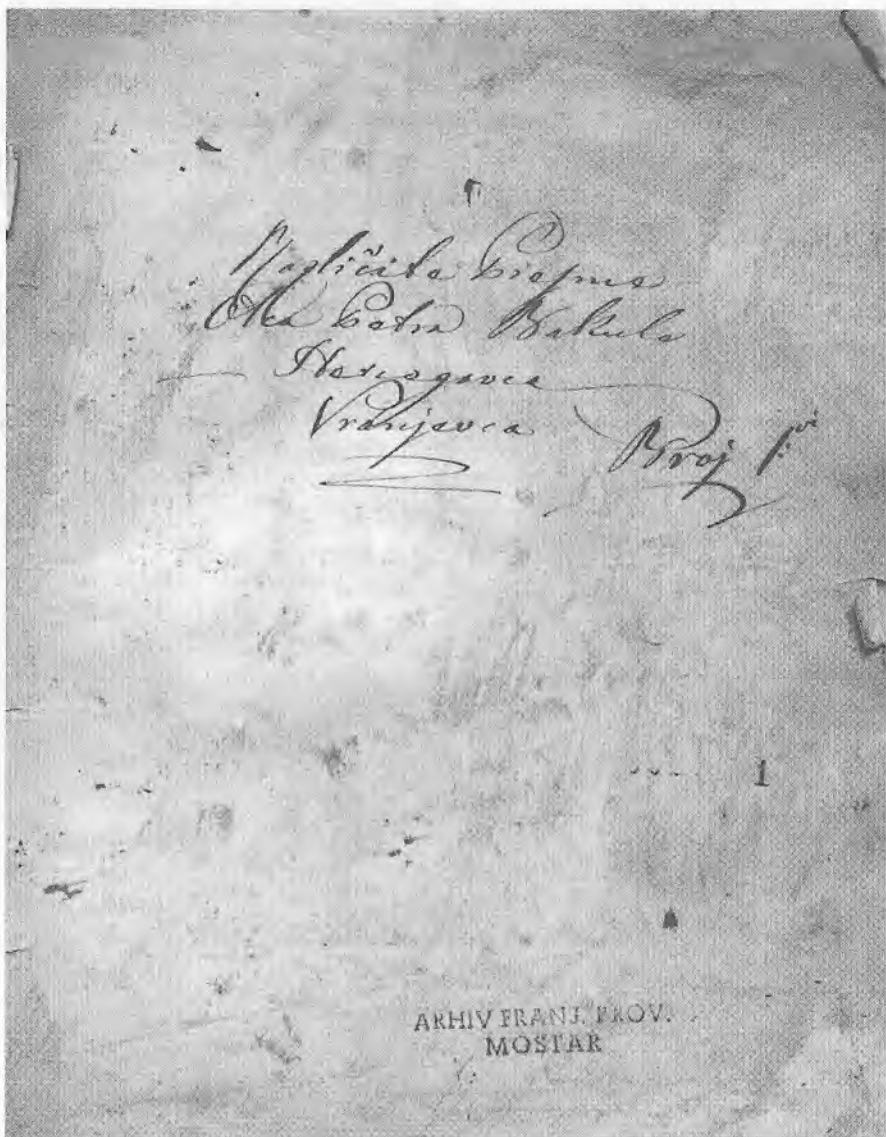 Različita Pisma
Otca Petra Bakula
Hercegovca
Vranjevca Broj 1:vi
1
ARHIV FRANJ. PROV.
MOSTAR